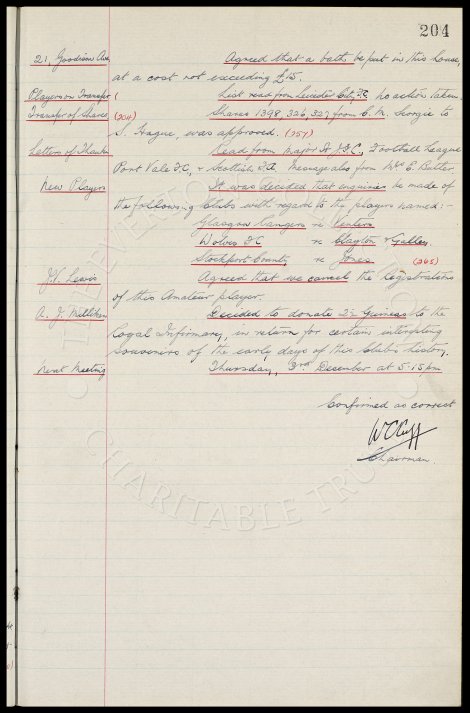 204
21, Goodison Ave. Agreed that a bath be put in this house,
at a cost not exceeding £15.
Players on Transfer ( List read from Leicester City F.C. no action taken
Transfer of Shares (204) Shares 1398, 326, 327, from C. M.
S. was approved. (257)
Letters of Thanks Read from Major Football League
Port Vale F.C., & Scottish F.A. Message also from Mrs E. Butler
New Players It was decided that enquiries be made of
the following Clubs with regard to the players named:-
Glasgow Rangers re Venters
Wolves F.C. re Clayton & Galley
Stockport County re Jones (265)
J.V. Lewis Agreed that we cancel the Registrations
of this Amateur player.
A. J. Milliken Decided to donate 25 Guineas to the
Royal Infirmary, in return for certain interesting
souvenirs of the early days of this Clubs history.
Next Meeting Thursday, 3rd December at 5.15 pm
Confirmed as correct
W C Cuff
Chairman.
CHARITABLE TRUST